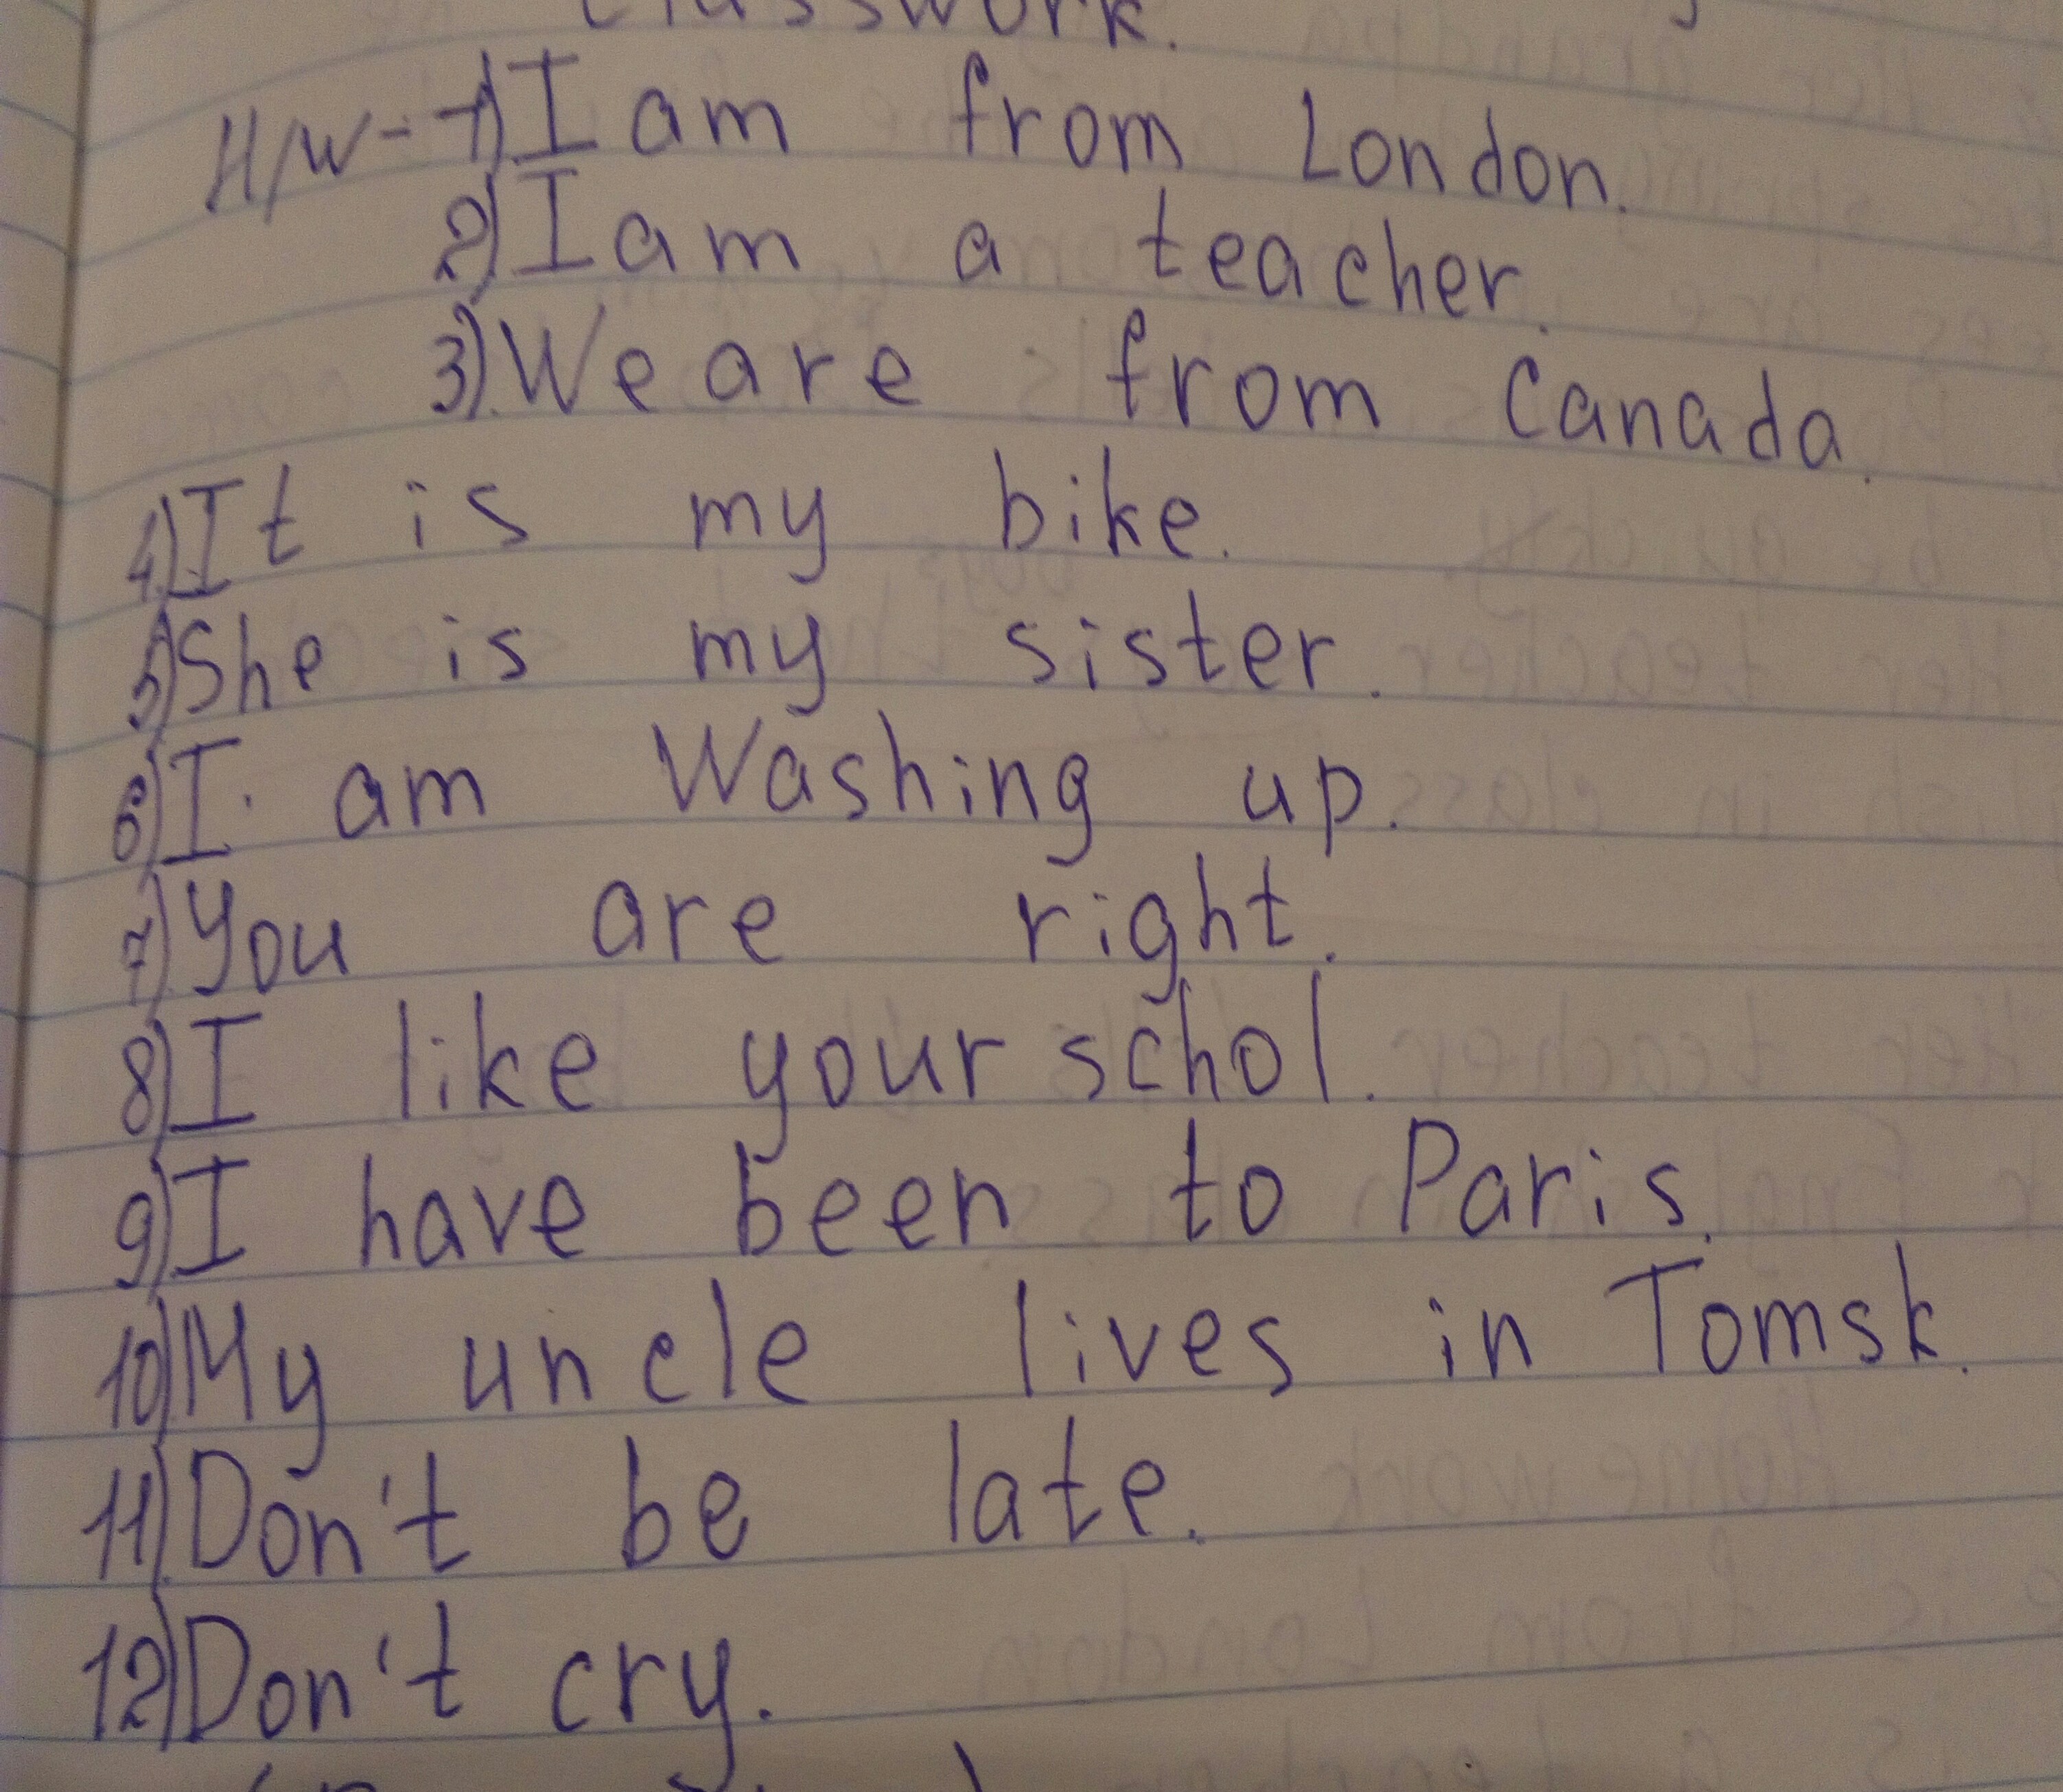 Classwork.
H/W - 1) I am from London.
2) I am a teacher.
3) We are from Canada.
4) It is my bike.
5) She is my sister.
6) I am Washing up.
7) You are right.
8) I like your schol.
9) I have been to Paris.
10) My uncle lives in Tomsk.
11) Don't be late.
12) Don't cry.